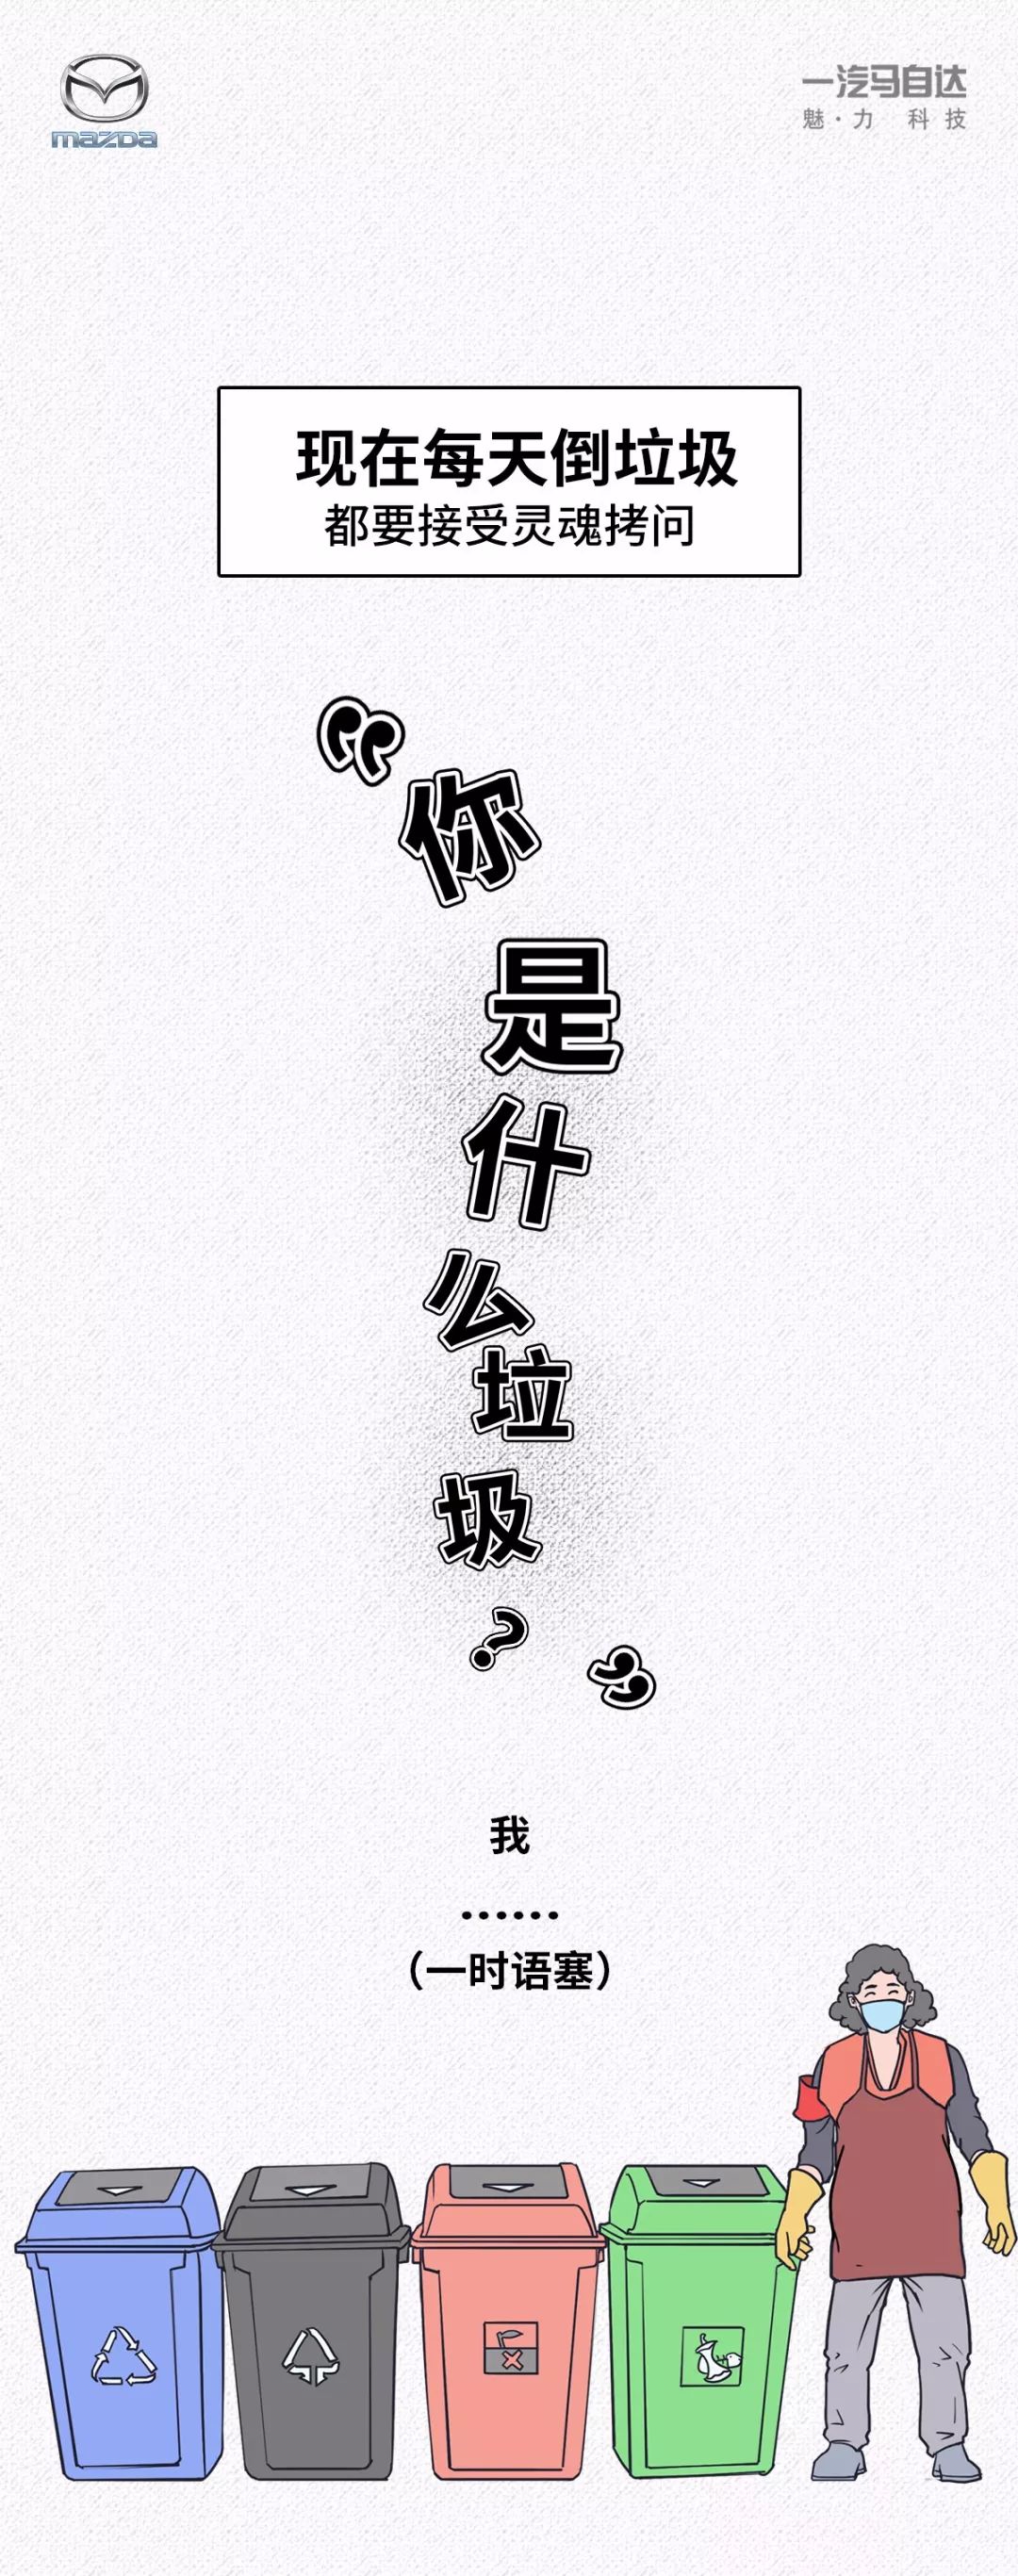 mazda
一汽马自达
魅·力 科技
现在每天倒垃圾
都要接受灵魂拷问
“你是什么垃圾?”
我
……
（一时语塞）